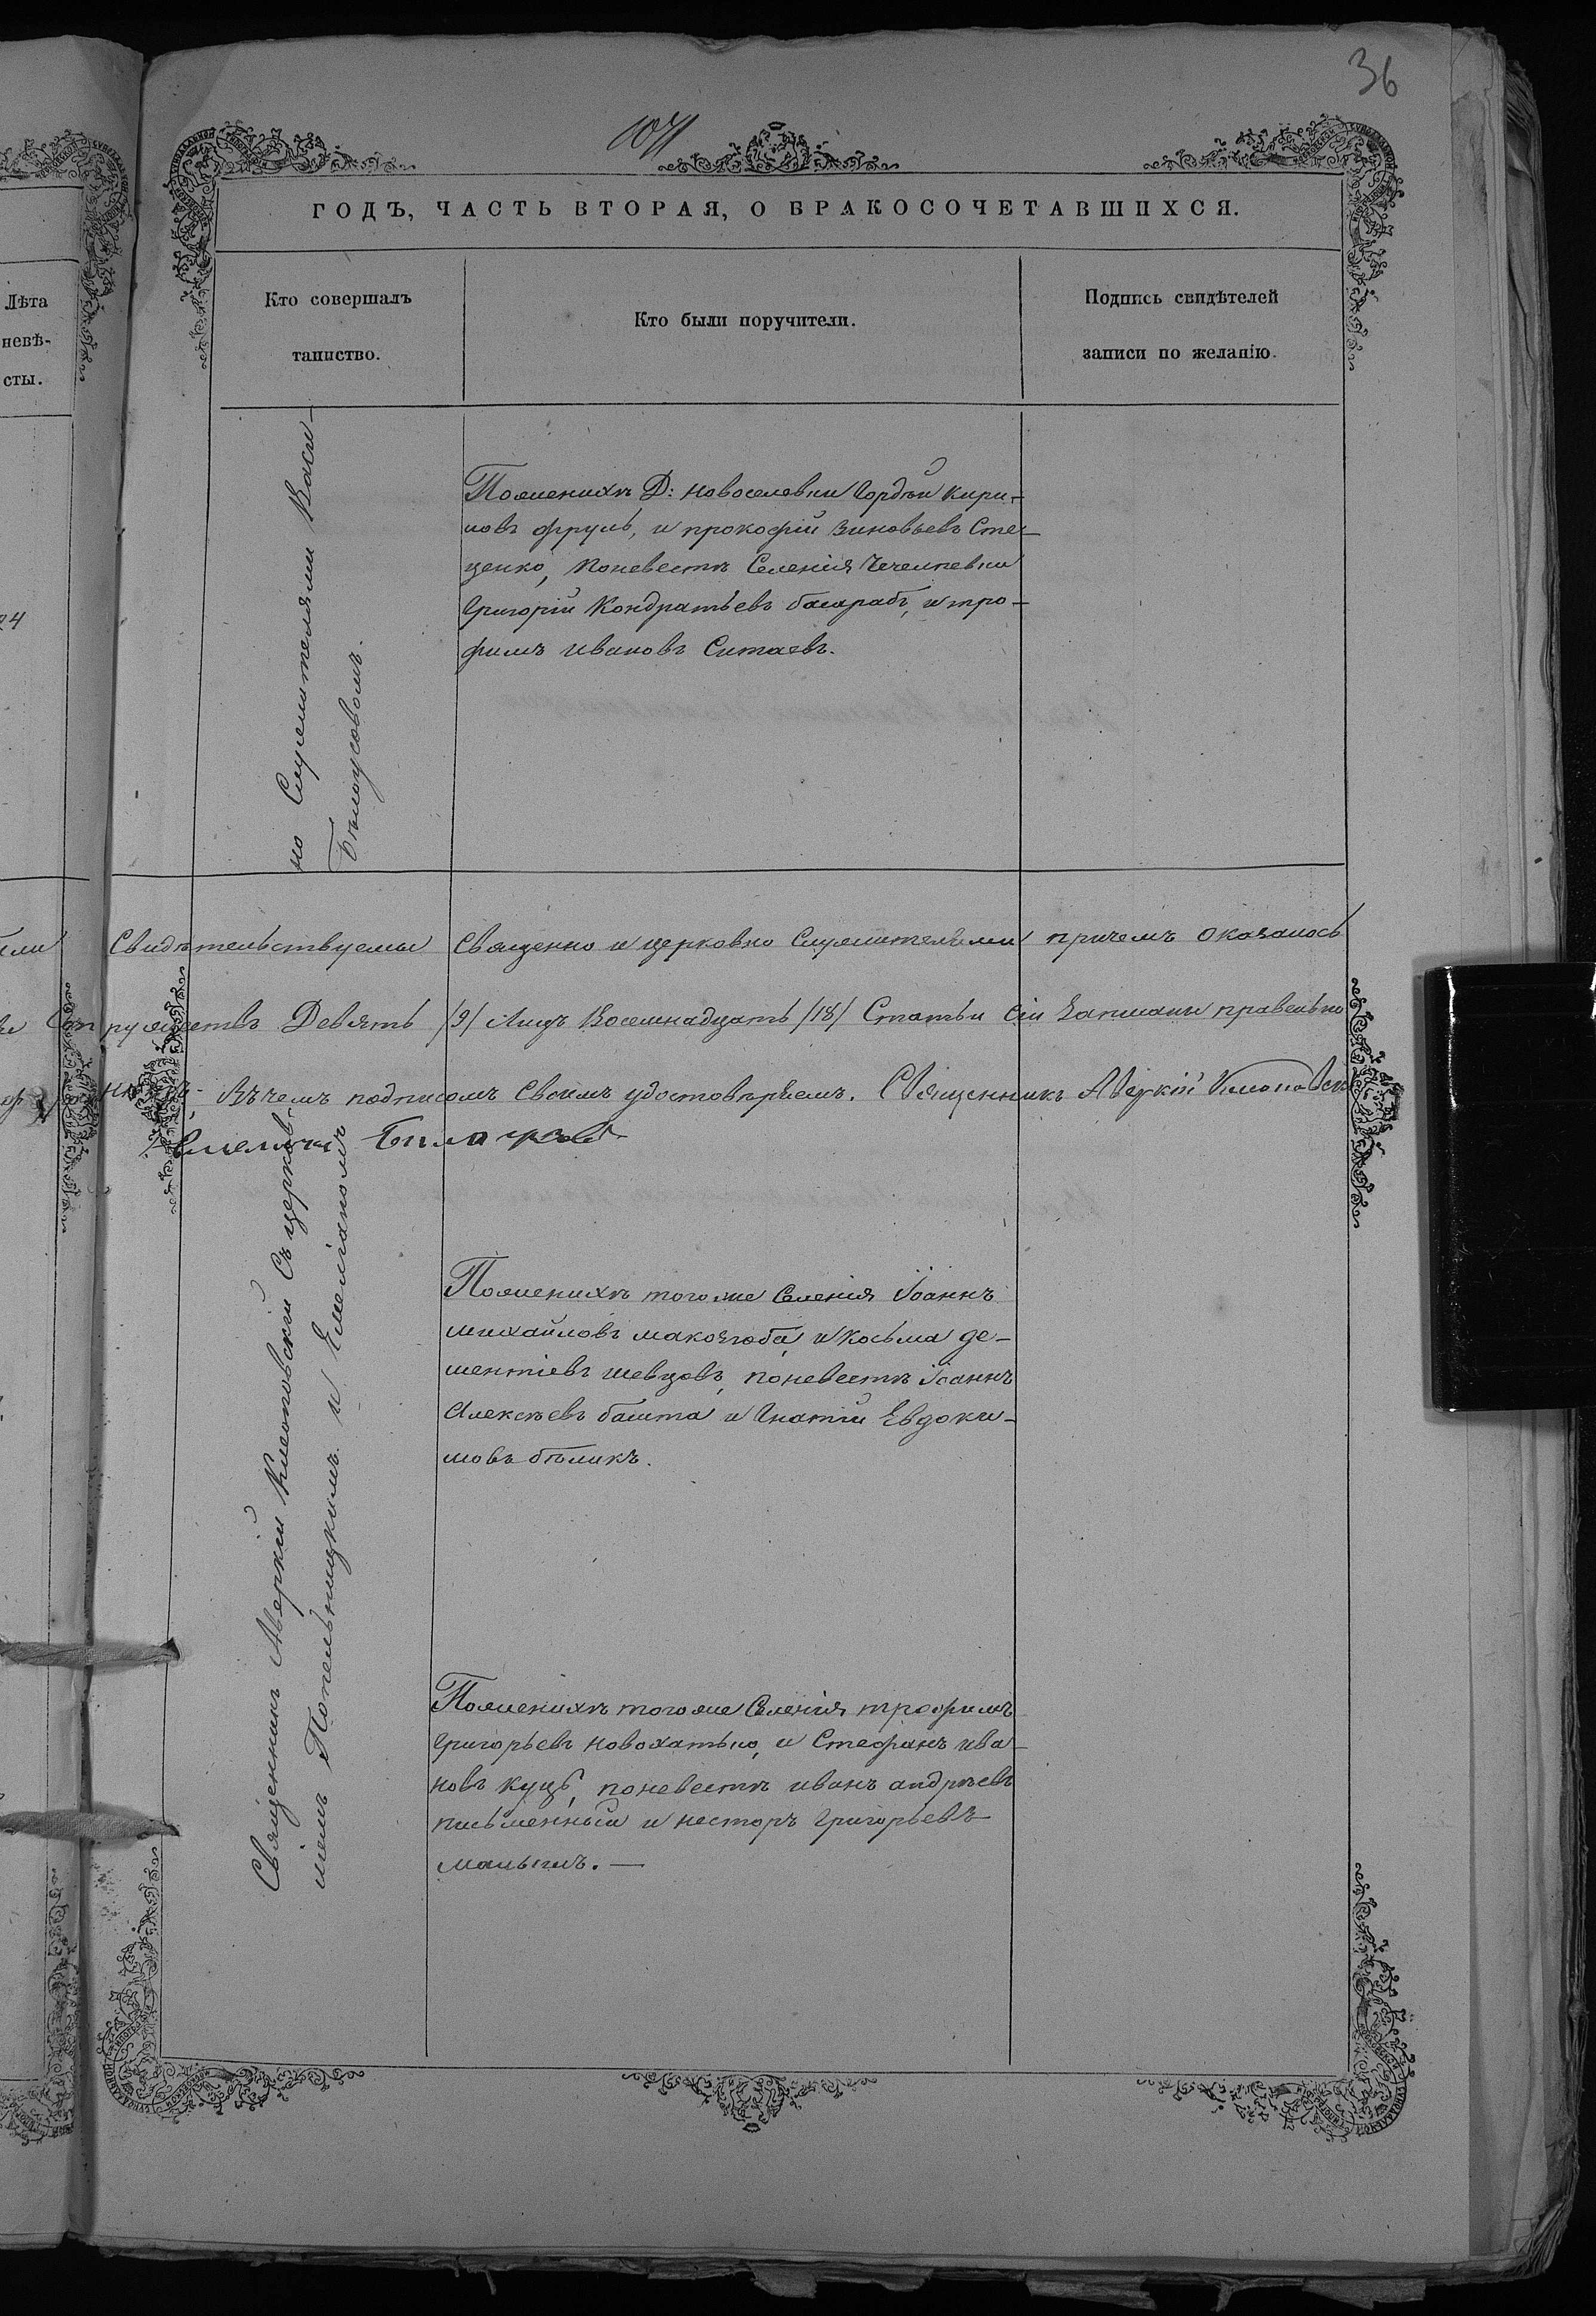 36
1071
ГОДЪ, ЧАСТЬ ВТОРАЯ, О БРАКОСОЧЕТАВШИХСЯ.
Лѣта
невѣ-
сты.
Кто совершалъ
таинство.
Кто были поручители.
Подпись свидѣтелей
записи по желанію.
24
но Служителями Васи-
Бѣлоусовомъ.
Пожениxѣ Д: новоселовки Гордѣй Кири-
ловъ фруль, и прокофій Зиновьевъ Сте-
ценко, поневестѣ Селенія Чечелевки
Григорій Кондратьевъ басарабъ, и тро-
фимъ ивановъ Ситаевъ.
Свидѣтельствуемы Священно и церковно Служителями причемъ оказалось
Супружествъ Девять /9/ Лицъ Восемнадцать /18/ Статьи сіи записаны правельно
Въ чемъ подписомъ своимъ удостовѣряемъ. Священникъ Аверкій
Священникъ Аверкій Клеоповскій Съ церков
Потельницкимъ и Емеліаномъ
Пожениxѣ того же Селенія Іоаннъ
михайловъ макозюба, и Косьма де-
ментіевъ шевцовъ, поневестѣ Іоаннъ
Алексѣевъ башта и Игнатій Евдоки-
мовъ бѣликъ.
Пожениxѣ того же Селенія трофимъ
Григорьевъ новохатько, и Стефанъ ива-
новъ куцъ, поневестѣ иванъ андрѣевъ
письменный и несторъ Григорьевъ